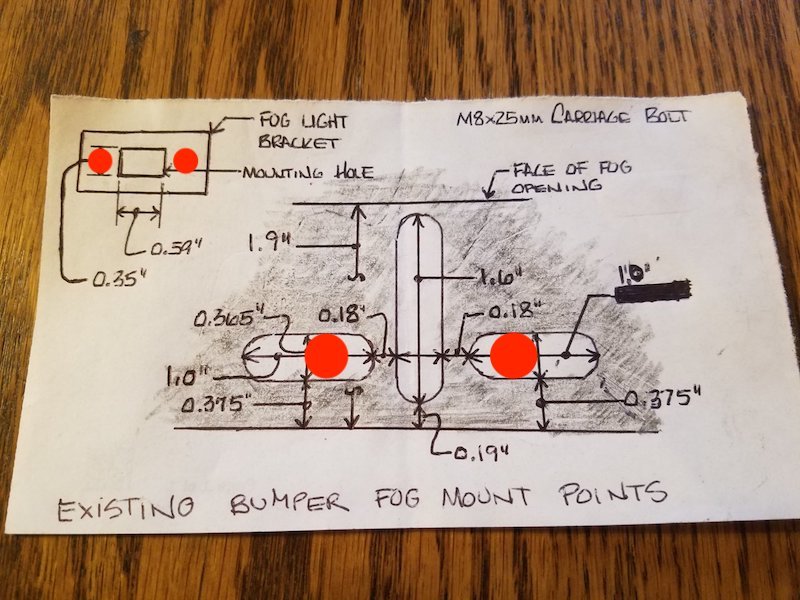 FOG LIGHT
BRACKET
MOUNTING HOLE
0.59"
0.35"
M8x25mm CARRIAGE BOLT
FACE OF FOG
OPENING
1.9"
1.6"
1.0"
0.365"
0.18"
0.18"
1.0"
0.375"
0.375"
0.19"
EXISTING BUMPER FOG MOUNT POINTS